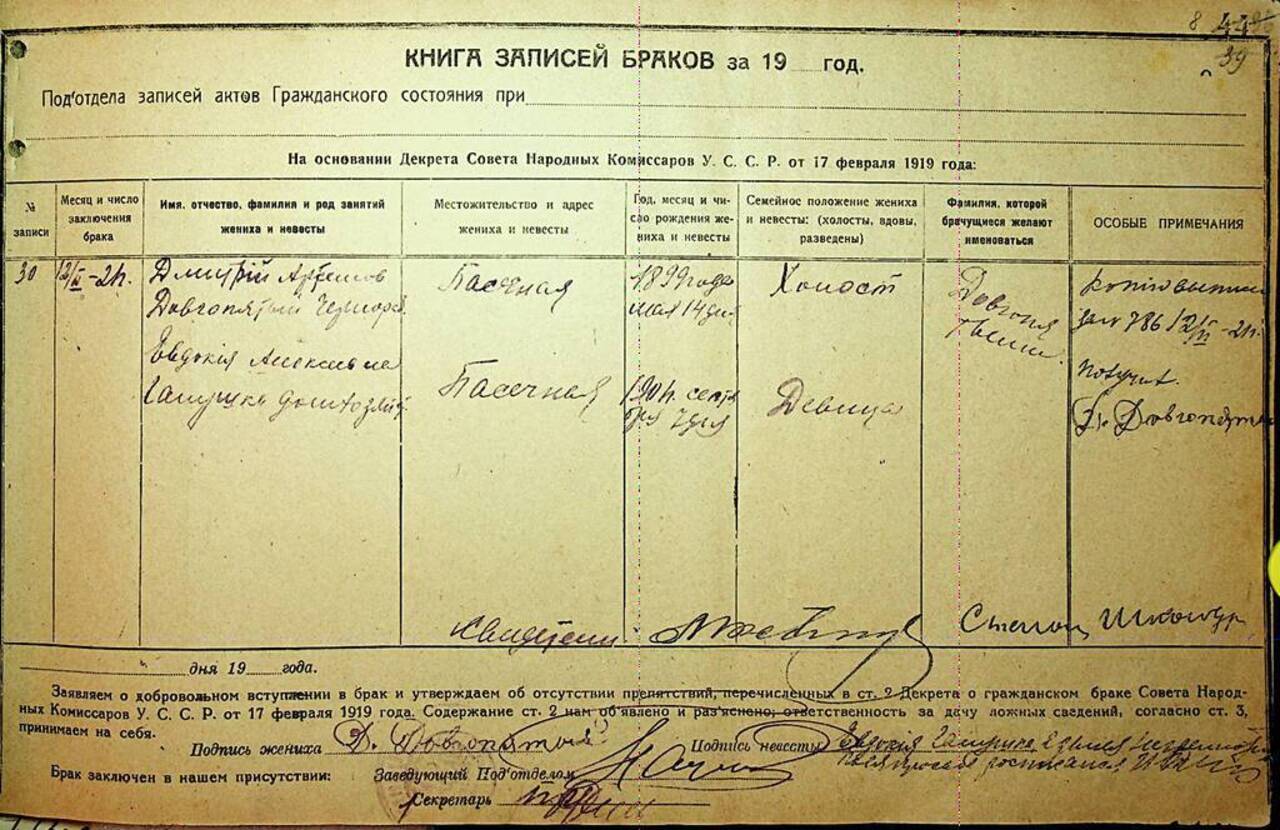 8 44
39
КНИГА ЗАПИСЕЙ БРАКОВ за 19 год.
Под'отдела записей актов Гражданского состояния при
На основании Декрета Совета Народных Комиссаров У. С. С. Р. от 17 февраля 1919 года:
№ записи
Месяц и число заключения брака
Имя, отчество, фамилия и род занятий жениха и невесты
Местожительство и адрес жениха и невесты
Год, месяц и число рождения жениха и невесты
Семейное положение жениха и невесты: (холосты, вдовы, разведены)
Фамилия, которой брачущиеся желают именоваться
ОСОБЫЕ ПРИМЕЧАНИЯ
30
Дмитрій Артемов
Довгопятый
Пасечная
1899 года
мая 14 дня
Холост
Довгопя
тыми
786
Евдокія Алексеевна
Пасечная
сентя
бря
Девица
Получил
Д. Довгопятый
Свидетели
Степан
дня 19 года.
Заявляем о добровольном вступлении в брак и утверждаем об отсутствии препятствий, перечисленных в ст. 2 Декрета о гражданском браке Совета Народ-
ных Комиссаров У. С. С. Р. от 17 февраля 1919 года. Содержание ст. 2 нам об'явлено и раз'яснено, ответственность за дачу ложных сведений, согласно ст. 3,
принимаем на себя.
Подпись жениха Д. Довгопятый Подпись невесты Евдокія
Брак заключен в нашем присутствии: Заведующий Под'отделом
Секретарь